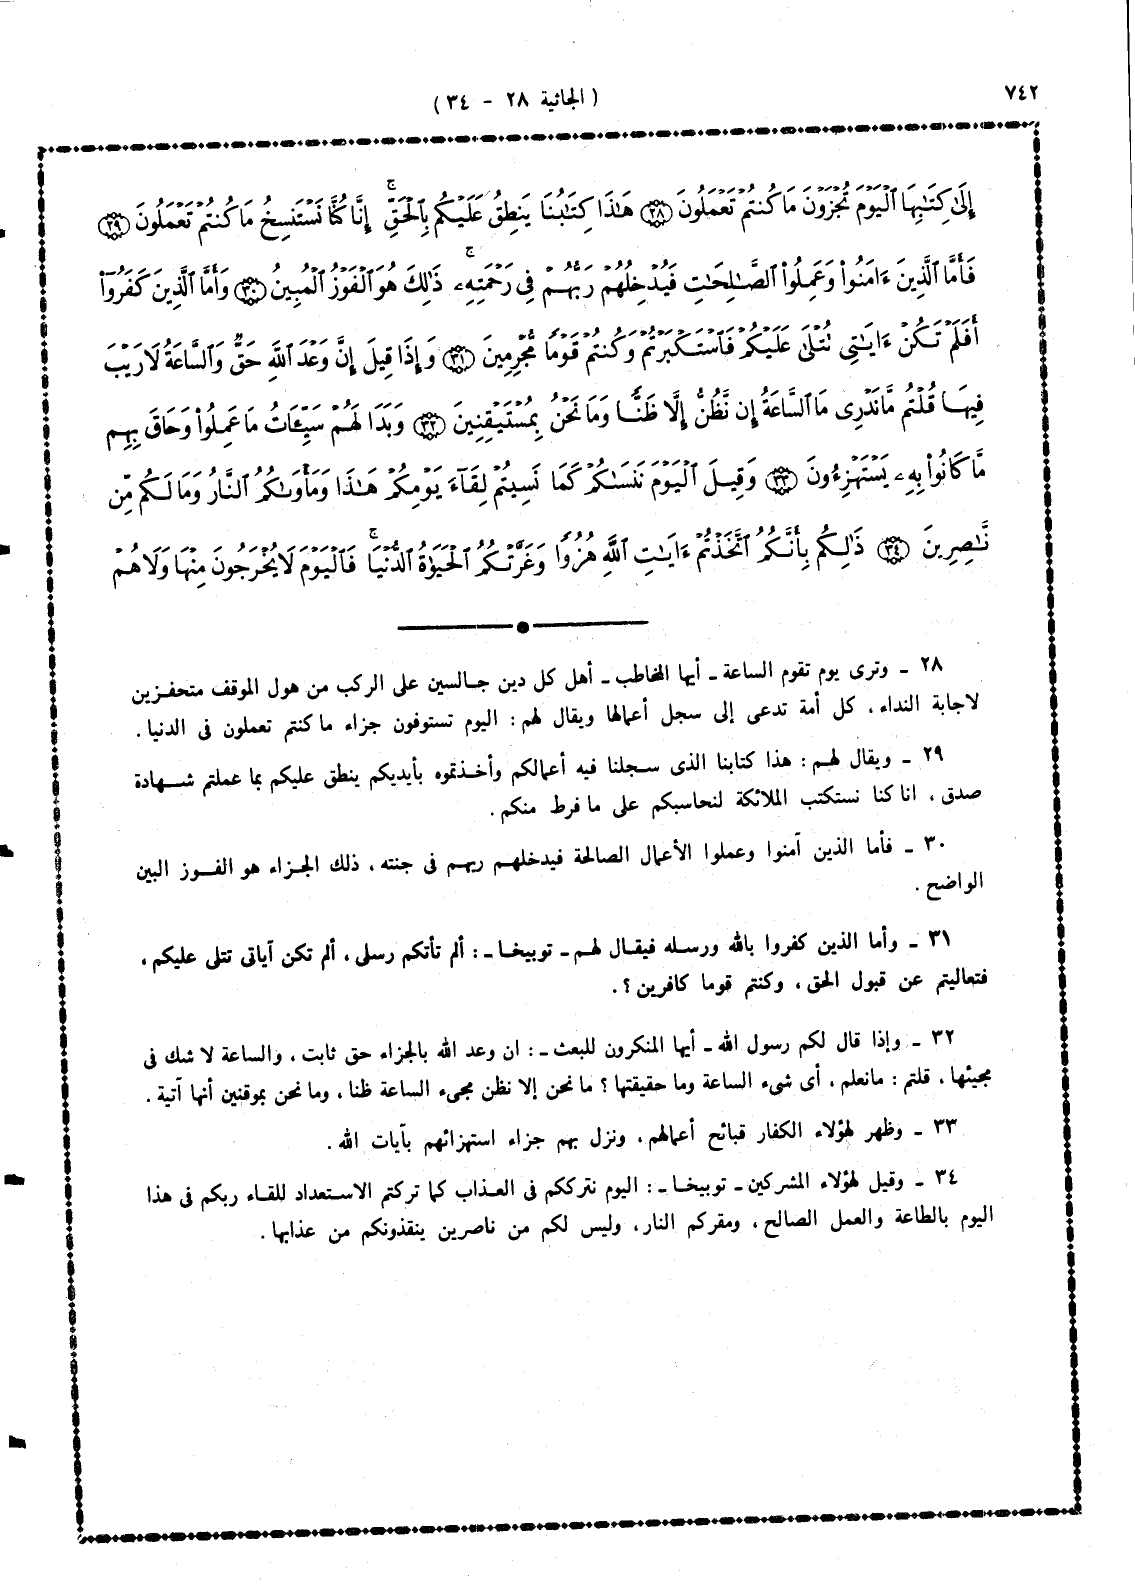 ٧٤٢
( الجاثية ٢٨ - ٣٤ )
إِلَىٰ كِتَٰبِهَا ٱلْيَوْمَ تُجْزَوْنَ مَا كُنتُمْ تَعْمَلُونَ ٢٨ هَٰذَا كِتَٰبُنَا يَنطِقُ عَلَيْكُم بِٱلْحَقِّ ۚ إِنَّا كُنَّا نَسْتَنسِخُ مَا كُنتُمْ تَعْمَلُونَ ٢٩
فَأَمَّا ٱلَّذِينَ ءَامَنُوا۟ وَعَمِلُوا۟ ٱلصَّٰلِحَٰتِ فَيُدْخِلُهُمْ رَبُّهُمْ فِى رَحْمَتِهِۦ ۚ ذَٰلِكَ هُوَ ٱلْفَوْزُ ٱلْمُبِينُ ٣٠ وَأَمَّا ٱلَّذِينَ كَفَرُوٓا۟
أَفَلَمْ تَكُنْ ءَايَٰتِى تُتْلَىٰ عَلَيْكُمْ فَٱسْتَكْبَرْتُمْ وَكُنتُمْ قَوْمًا مُّجْرِمِينَ ٣١ وَإِذَا قِيلَ إِنَّ وَعْدَ ٱللَّهِ حَقٌّ وَٱلسَّاعَةُ لَا رَيْبَ
فِيهَا قُلْتُم مَّا نَدْرِى مَا ٱلسَّاعَةُ إِن نَّظُنُّ إِلَّا ظَنًّا وَمَا نَحْنُ بِمُسْتَيْقِنِينَ ٣٢ وَبَدَا لَهُمْ سَيِّـَٔاتُ مَا عَمِلُوا۟ وَحَاقَ بِهِم
مَّا كَانُوا۟ بِهِۦ يَسْتَهْزِءُونَ ٣٣ وَقِيلَ ٱلْيَوْمَ نَنسَىٰكُمْ كَمَا نَسِيتُمْ لِقَآءَ يَوْمِكُمْ هَٰذَا وَمَأْوَىٰكُمُ ٱلنَّارُ وَمَا لَكُم مِّن
نَّٰصِرِينَ ٣٤ ذَٰلِكُم بِأَنَّكُمُ ٱتَّخَذْتُمْ ءَايَٰتِ ٱللَّهِ هُزُوًا وَغَرَّتْكُمُ ٱلْحَيَوٰةُ ٱلدُّنْيَا ۚ فَٱلْيَوْمَ لَا يُخْرَجُونَ مِنْهَا وَلَا هُمْ
٢٨ ـ وترى يوم تقوم الساعة ـ أيها المخاطب ـ أهل كل دين جالسين على الركب من هول الموقف متحفزين
لاجابة النداء ، كل أمة تدعى إلى سجل أعمالها ويقال لهم : اليوم تستوفون جزاء ما كنتم تعملون فى الدنيا .
٢٩ ـ ويقال لهم : هذا كتابنا الذى سجلنا فيه أعمالكم وأخذتموه بأيديكم ينطق عليكم بما عملتم شهادة
صدق ، انا كنا نستكتب الملائكة لنحاسبكم على ما فرط منكم .
٣٠ ـ فأما الذين آمنوا وعملوا الأعمال الصالحة فيدخلهم ربهم فى جنته ، ذلك الجزاء هو الفوز البين
الواضح .
٣١ ـ وأما الذين كفروا بالله ورسله فيقال لهم ـ توبيخا ـ : ألم تأتكم رسلى ، ألم تكن آياتى تتلى عليكم ،
فتعاليتم عن قبول الحق ، وكنتم قوما كافرين ؟ .
٣٢ ـ وإذا قال لكم رسول الله ـ أيها المنكرون للبعث ـ : ان وعد الله بالجزاء حق ثابت ، والساعة لا شك فى
مجيئها ، قلتم : مانعلم ، أى شىء الساعة وما حقيقتها ؟ ما نحن إلا نظن مجىء الساعة ظنا ، وما نحن بموقنين أنها آتية .
٣٣ ـ وظهر لهؤلاء الكفار قبائح أعمالهم ، ونزل بهم جزاء استهزائهم بآيات الله .
٣٤ ـ وقيل لهؤلاء المشركين ـ توبيخا ـ : اليوم نترككم فى العذاب كما تركتم الاستعداد للقاء ربكم فى هذا
اليوم بالطاعة والعمل الصالح ، ومقركم النار ، وليس لكم من ناصرين ينقذونكم من عذابها .